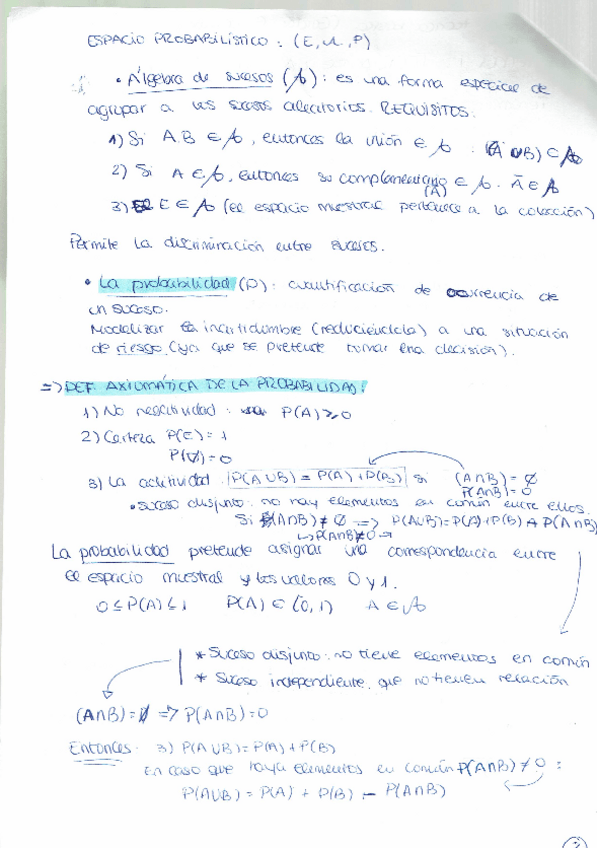 ESPACIO PROBABILÍSTICO : (E, A, P)
• Álgebra de sucesos (A) : es una forma especial de
agrupar a los sucesos aleatorios. REQUISITOS.
1) Si A,B ∈ A, entonces la unión ∈ A. (A ∪ B) ⊂ A
2) Si A ∈ A, entonces su complementario (Ā) ∈ A. Ā ∈ A
3) E ∈ A (el espacio muestral pertenece a la colección)
Permite la discriminación entre sucesos.
• La probabilidad (P) : cuantificación de ocurrencia de
un suceso.
Modelizar la incertidumbre (reduciéndola) a una situación
de riesgo (ya que se pretende tomar una decisión).
=> DEF. AXIOMÁTICA DE LA PROBABILIDAD:
1) No negatividad : P(A) ≥ 0
2) Certeza P(E) = 1
P(∅) = 0
3) La aditividad P(A∪B) = P(A) + P(B) si (A∩B) = ∅
P(A∩B) = 0
• Suceso disjunto: no hay elementos en común entre ellos.
Si (A∩B) ≠ ∅ => P(A∪B) = P(A) + P(B) + P(A∩B)
↳ P(A∩B) ≠ 0 →
La probabilidad pretende asignar una correspondencia entre
el espacio muestral y los valores 0 y 1.
0 ≤ P(A) ≤ 1 P(A) ∈ (0, 1) A ∈ A
* Suceso disjunto: no tiene elementos en común
* Suceso independiente, que no tienen relación
(A∩B) = ∅ => P(A∩B) = 0
Entonces: 3) P(A∪B) = P(A) + P(B)
En caso que haya elementos en común P(A∩B) ≠ 0 :
P(A∪B) = P(A) + P(B) - P(A∩B)